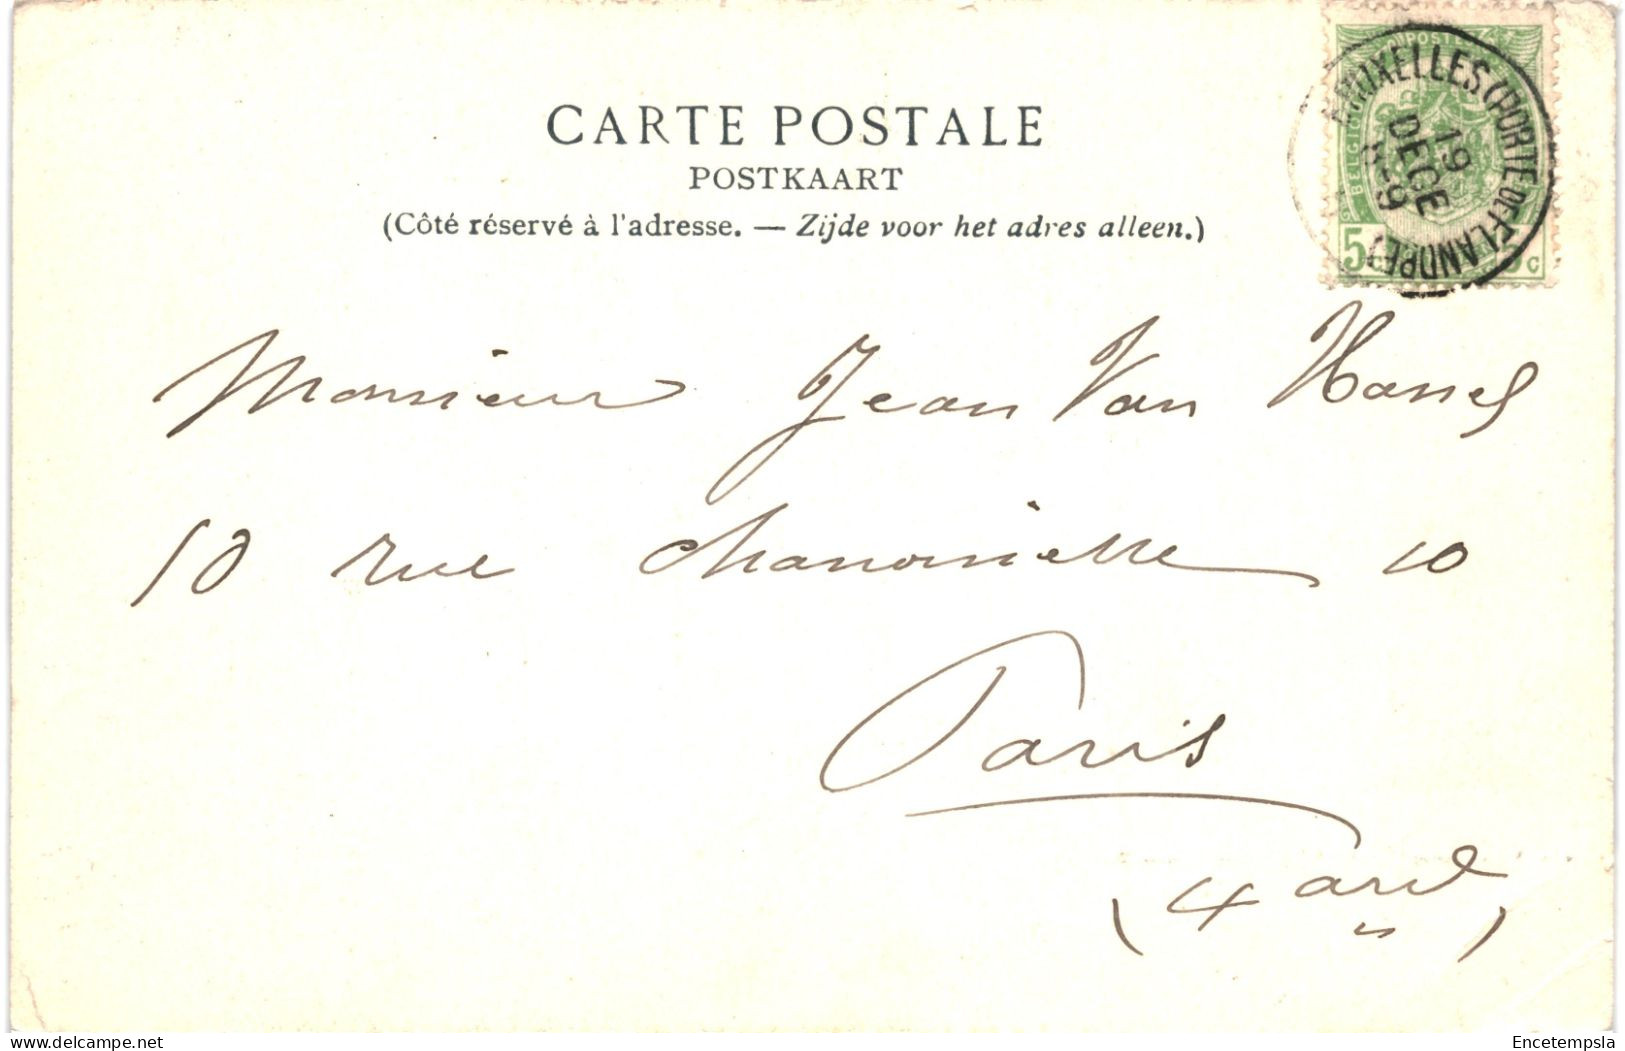 CARTE POSTALE
POSTKAART
(Côté réservé à l'adresse. — Zijde voor het adres alleen.)
POSTE
BELGIQUE
5 c 5 c
BRUXELLES (PORTE DE FLANDRE)
19
DECE
8-9
Monsieur Jean Van Hassel
10 rue Chanoinesse 10
Paris
(4 ard)
Encetempsla